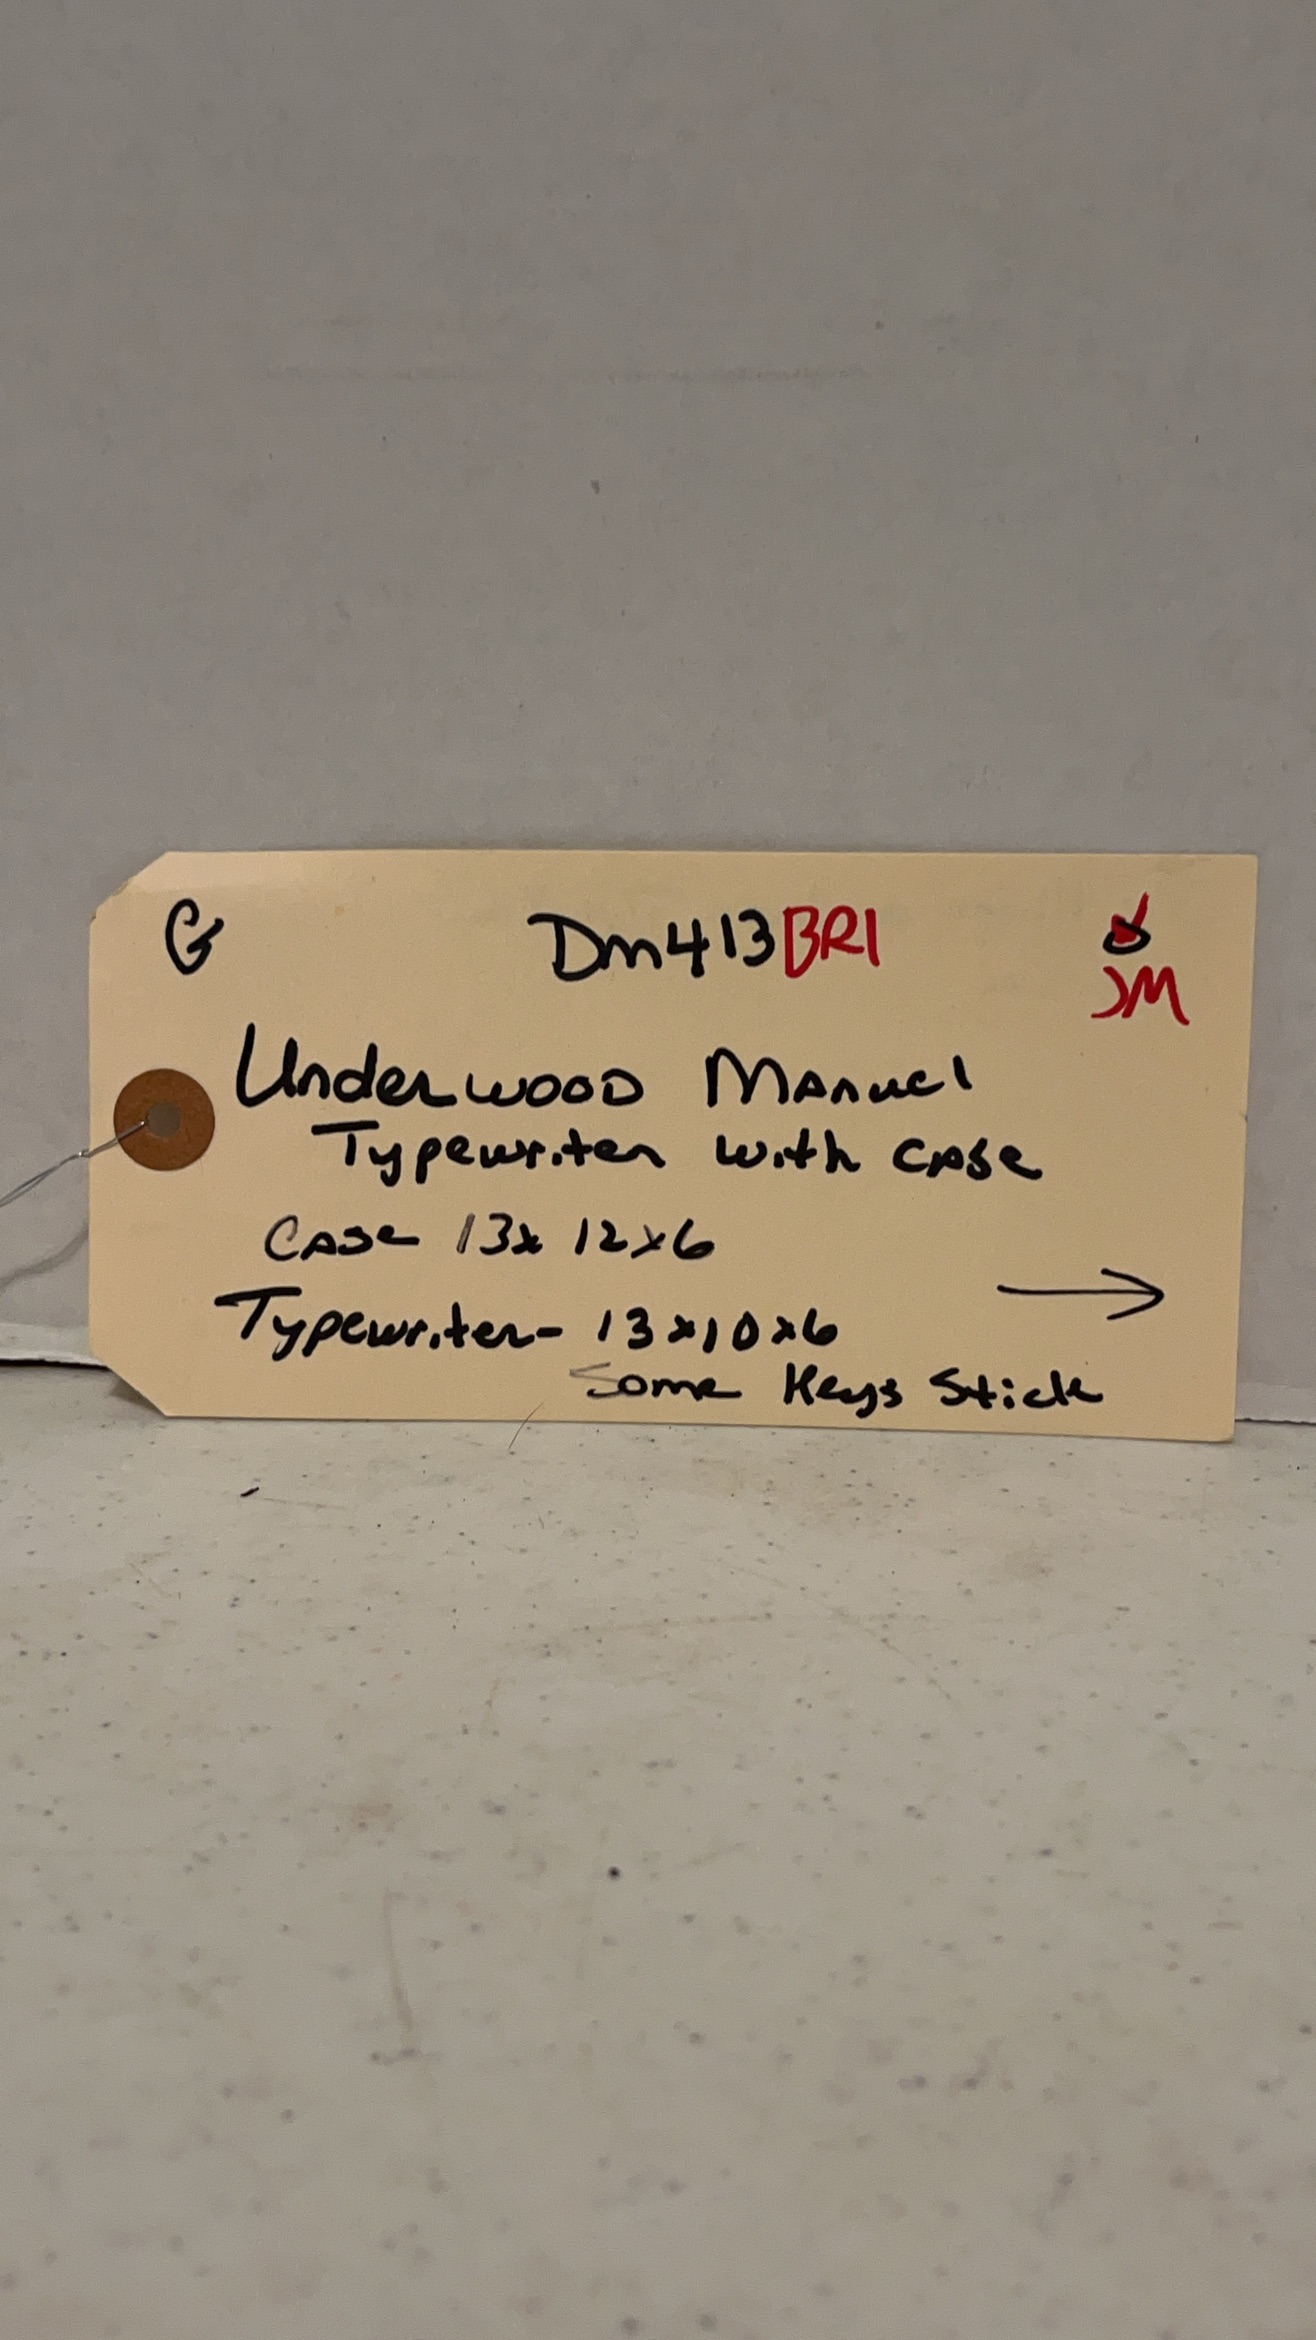 G Dm413BR1
JM
Underwood Manuel
Typewriter with case
Case 13x 12x6
Typewriter- 13x10x6
Some Keys Stick